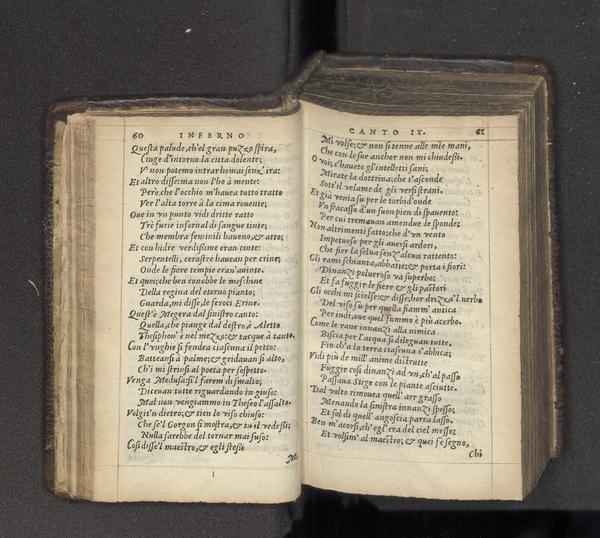 60 INFERNO
Questa palude, ch'el gran puzzo spira,
Cinge d'intorno la citta dolente;
V non potemo intrar homai senz'ira:
Et altro disse: ma non l'ho à mente:
Però che l'occhio m'hauea tutto tratto
Ver l'alta torre à la cima rouente;
Oue in vn punto vidi dritte ratto
Trè furie infernal di sangue tinte;
Che membra feminili haueno, & atto;
Et con hidre verdissime eran cinte:
Serpentelli, ceraste haueau per crine;
Onde le fiere tempie eran'auinte.
Et quei; che ben conobbe le meschine
Della regina del eterno pianto;
Guarda, mi disse, le feroci Erine.
Quest'è Megera dal sinistro canto:
Quella, che piange dal destro, è Aletto
Thesiphon'è nel mezzo: & tacque à tanto.
Con l'vnghie si fendea ciascuna il petto:
Batteansi à palme; & gridauan si alto,
Ch'i mi strinsi al poeta per sospetto.
Venga Medusa: si l farem di smalto;
Diceuan tutte riguardando in giuso:
Mal non vengiammo in Theseo l'assalto.
Volgiti'n dietro; & tien lo viso chiuso:
Che se'l Gorgon si mostra, & tu il vedessi;
Nulla sarebbe del tornar mai suso:
Cosi disse'l maestro; & egli stessi
Mi
1
CANTO IX. 61
Mi volse; & non si tenne alle mie mani,
Che con le sue anchor non mi chiudessi.
O voi; c'hauete gl'intelletti sani;
Mirate la dottrina; che s'asconde
Sott'el velame de gli versi strani.
Et già venia su per le torbid'onde
Vn fracasso d'un suon pien di spauento:
Per cui tremauan amendue le sponde:
Non altrimenti fatto; che d'un vento
Impetuoso per gli auersi ardori,
Che fier la selua senz'alcun rattento:
Gli rami schianta, abbatte; & porta i fiori:
Dinanzi polueroso va superbo:
Et fa fuggir le fiere & gli pastori
Gli occhi mi sciolse; & disse; hor drizza'l nerbo
Del viso su per quella fiamm'antica
Per indi, oue quel fummo è più acerbo.
Come le rane innanzi alla nimica
Biscia per l'acqua si dileguan tutte,
Fin ch'à la terra ciascuna s'abbica;
Vidi più de mill'anime distrutte
Fuggir cosi dinanzi ad vn, ch'al passo
Passaua Stige con le piante asciutte.
Dal volto rimouea quell'aer grasso
Menando la sinistra innanzi spesso;
Et sol di quell'angoscia parea lasso.
Ben m'acorsi, ch'egl'era del ciel messo:
Et volsim'al maestro; & quei fe segno,
Chi